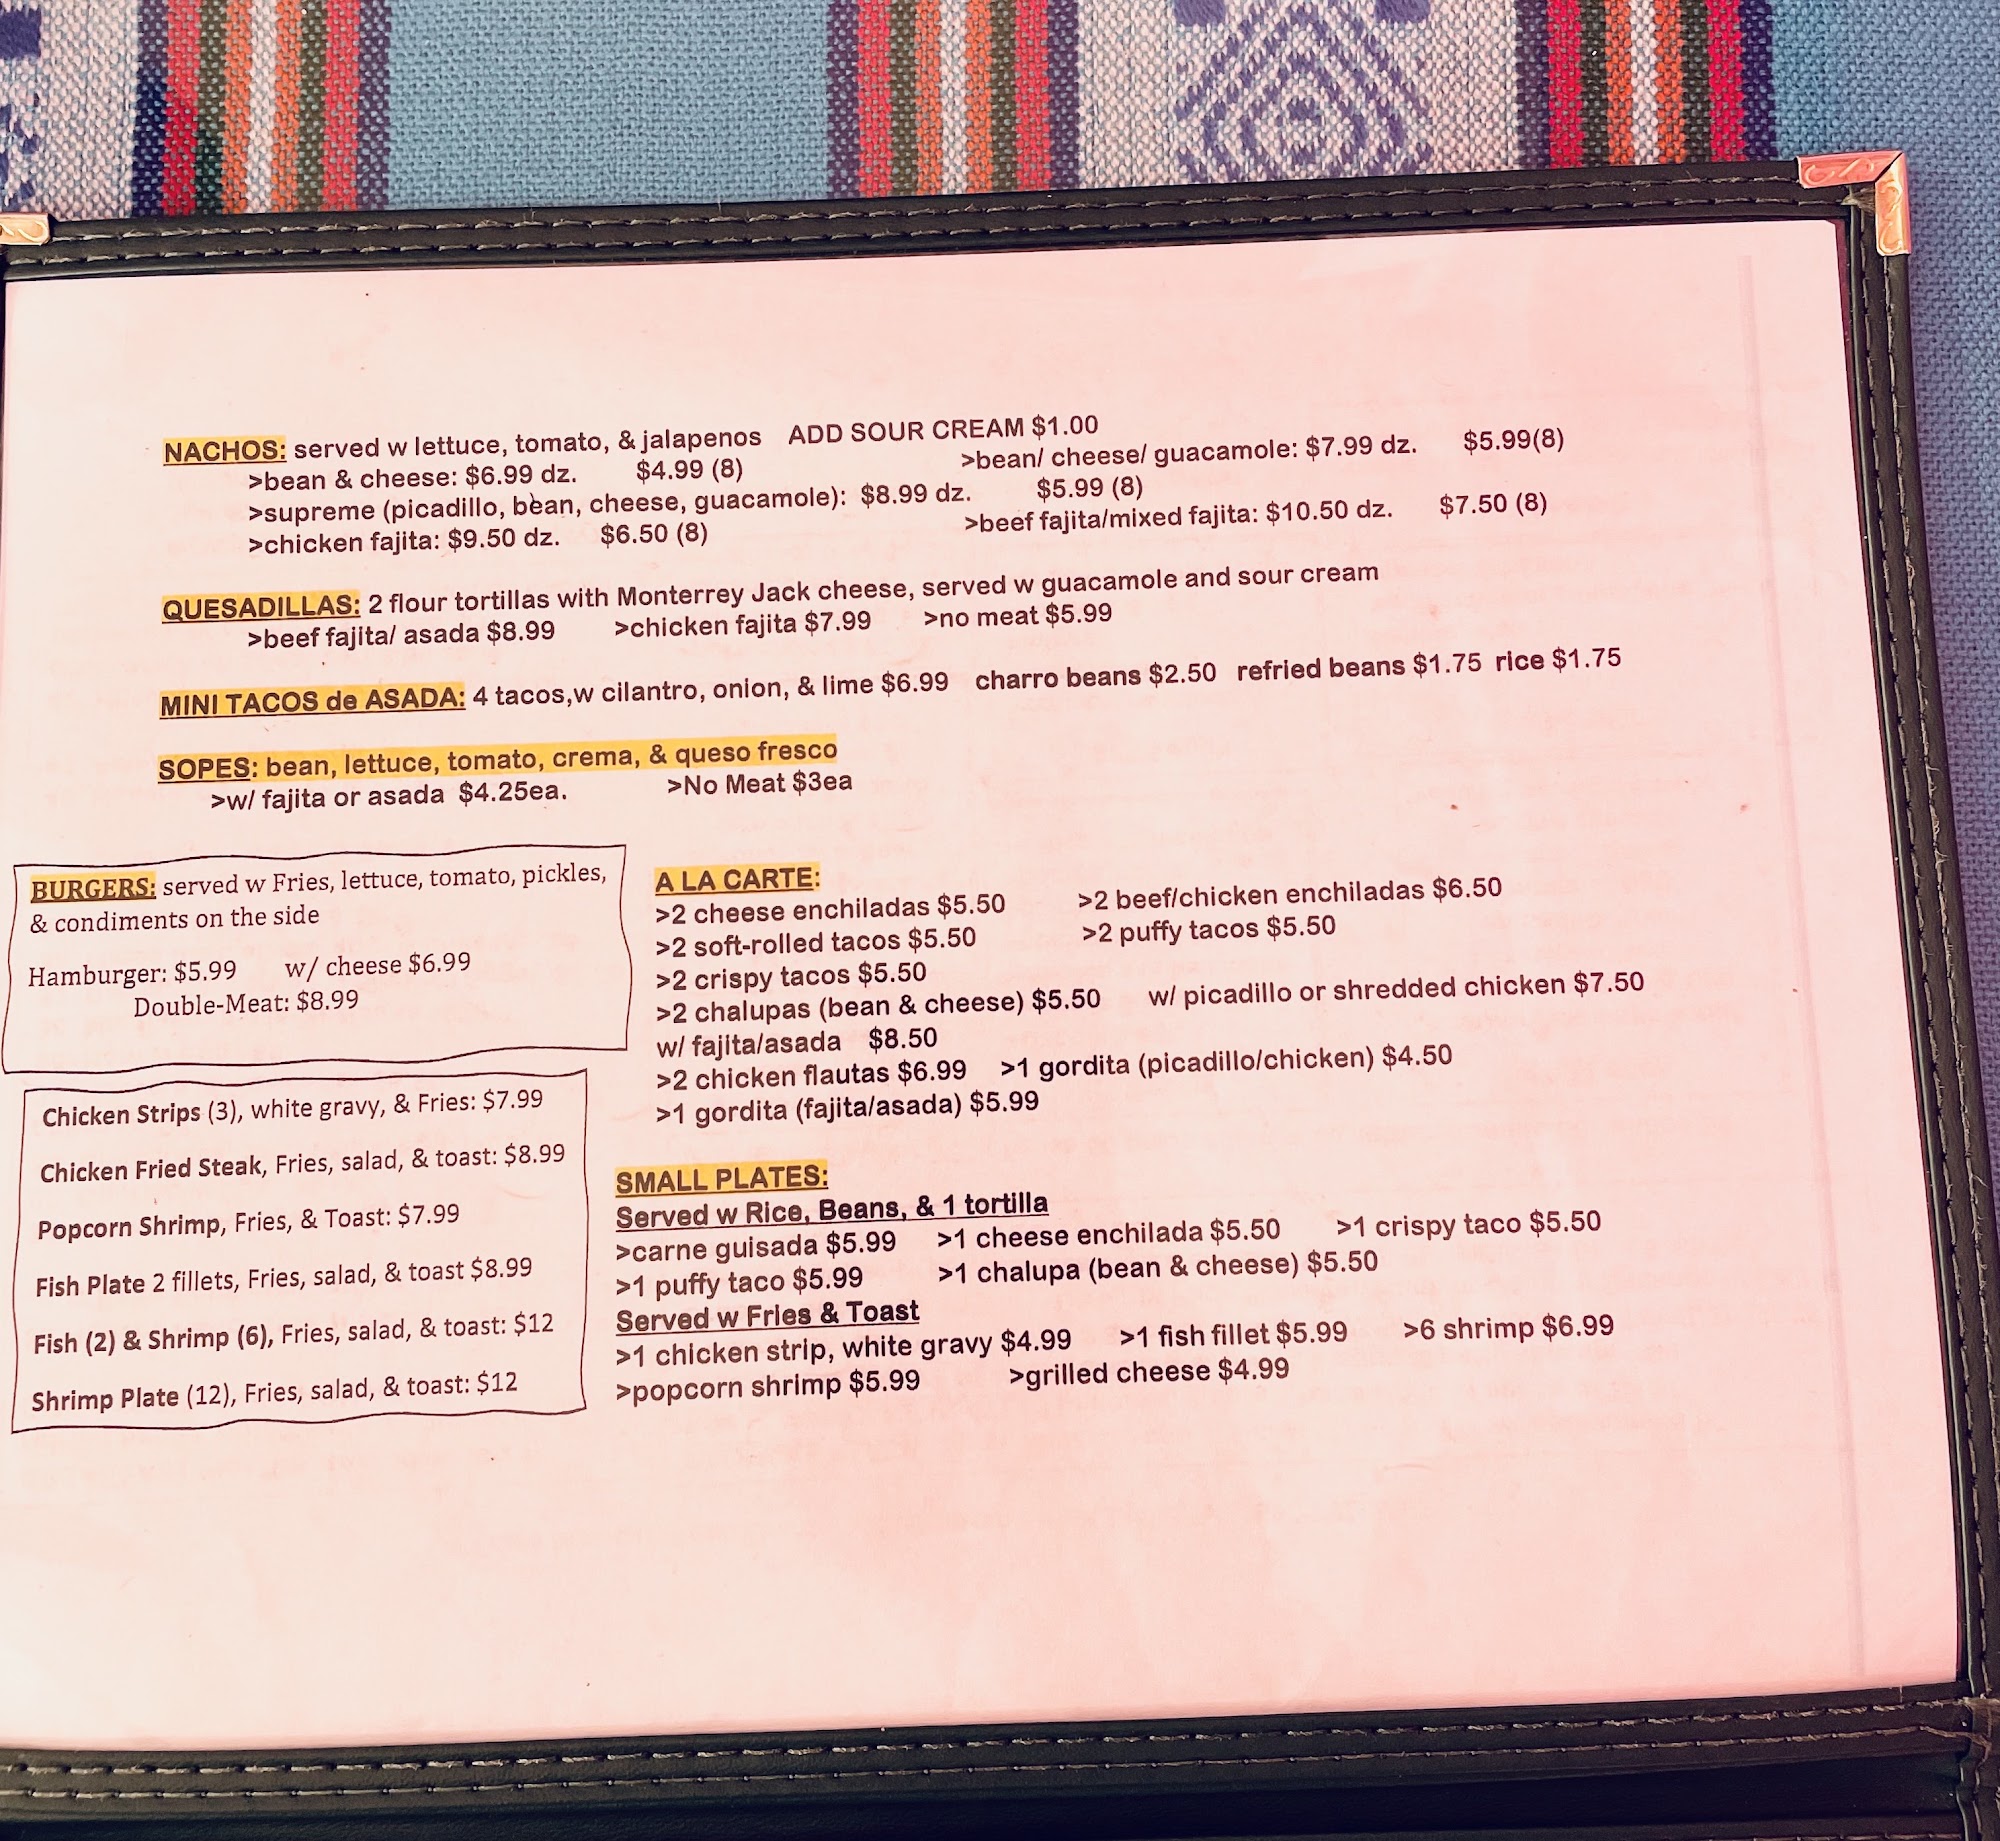 NACHOS: served w lettuce, tomato, & jalapenos ADD SOUR CREAM $1.00
>bean & cheese: $6.99 dz. $4.99 (8) >bean/ cheese/ guacamole: $7.99 dz. $5.99(8)
>supreme (picadillo, bean, cheese, guacamole): $8.99 dz. $5.99 (8)
>chicken fajita: $9.50 dz. $6.50 (8) >beef fajita/mixed fajita: $10.50 dz. $7.50 (8)
QUESADILLAS: 2 flour tortillas with Monterrey Jack cheese, served w guacamole and sour cream
>beef fajita/ asada $8.99 >chicken fajita $7.99 >no meat $5.99
MINI TACOS de ASADA: 4 tacos,w cilantro, onion, & lime $6.99 charro beans $2.50 refried beans $1.75 rice $1.75
SOPES: bean, lettuce, tomato, crema, & queso fresco
>w/ fajita or asada $4.25ea. >No Meat $3ea
BURGERS: served w Fries, lettuce, tomato, pickles,
& condiments on the side
Hamburger: $5.99 w/ cheese $6.99
Double-Meat: $8.99
Chicken Strips (3), white gravy, & Fries: $7.99
Chicken Fried Steak, Fries, salad, & toast: $8.99
Popcorn Shrimp, Fries, & Toast: $7.99
Fish Plate 2 fillets, Fries, salad, & toast $8.99
Fish (2) & Shrimp (6), Fries, salad, & toast: $12
Shrimp Plate (12), Fries, salad, & toast: $12
A LA CARTE:
>2 cheese enchiladas $5.50 >2 beef/chicken enchiladas $6.50
>2 soft-rolled tacos $5.50 >2 puffy tacos $5.50
>2 crispy tacos $5.50
>2 chalupas (bean & cheese) $5.50 w/ picadillo or shredded chicken $7.50
w/ fajita/asada $8.50
>2 chicken flautas $6.99 >1 gordita (picadillo/chicken) $4.50
>1 gordita (fajita/asada) $5.99
SMALL PLATES:
Served w Rice, Beans, & 1 tortilla
>carne guisada $5.99 >1 cheese enchilada $5.50 >1 crispy taco $5.50
>1 puffy taco $5.99 >1 chalupa (bean & cheese) $5.50
Served w Fries & Toast
>1 chicken strip, white gravy $4.99 >1 fish fillet $5.99 >6 shrimp $6.99
>popcorn shrimp $5.99 >grilled cheese $4.99